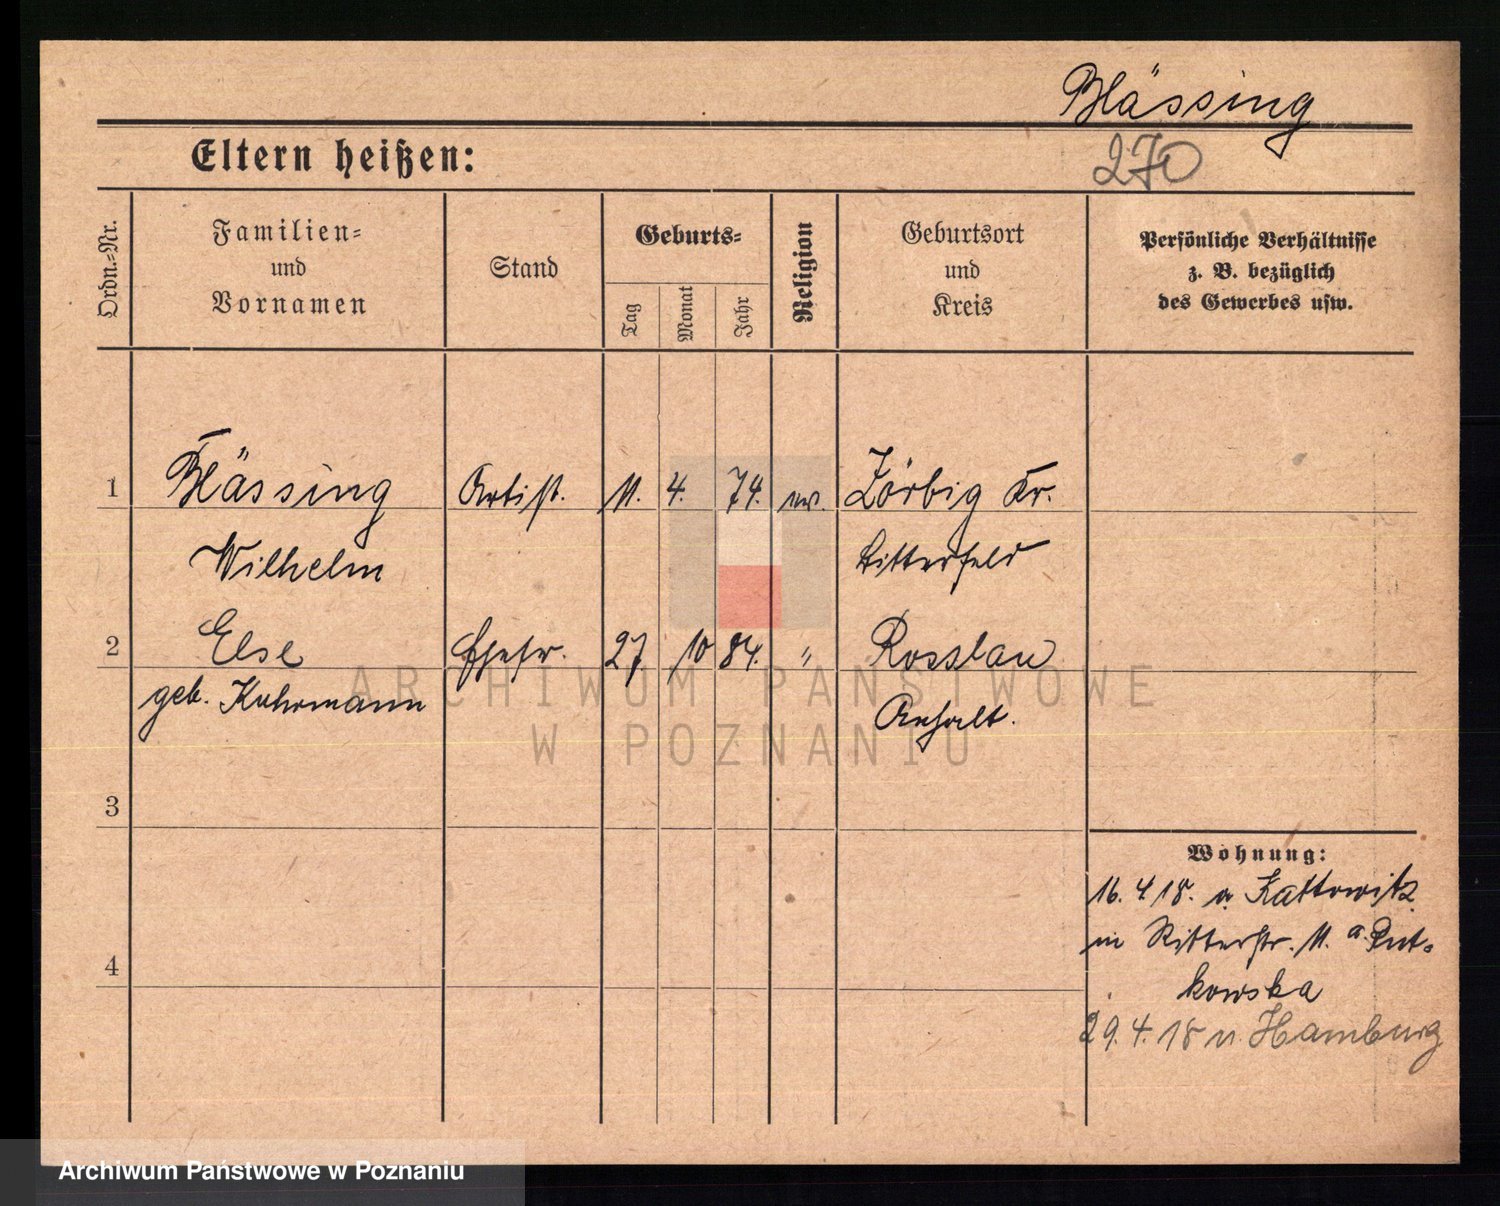 Blässing
Eltern heißen:
270
Ordn.-Nr.
Familien-
und
Vornamen
Stand
Geburts-
Tag
Monat
Jahr
Religion
Geburtsort
und
Kreis
Persönliche Verhältnisse
z. B. bezüglich
des Gewerbes usw.
1 Blässing Artist. 11. 4. 74. ev. Zörbig Kr.
Wilhelm Bitterfeld
2 Else Ehefr. 27. 10 84. " Rosslau
geb. Kuhrmann Anhalt.
3
4
Wohnung:
16. 4 18. a. Kattowitz
in Ritterstr. 11. a. Rut-
kowska
29. 4. 18 n. Hamburg
ARCHIWUM PAŃSTWOWE
W POZNANIU
Archiwum Państwowe w Poznaniu